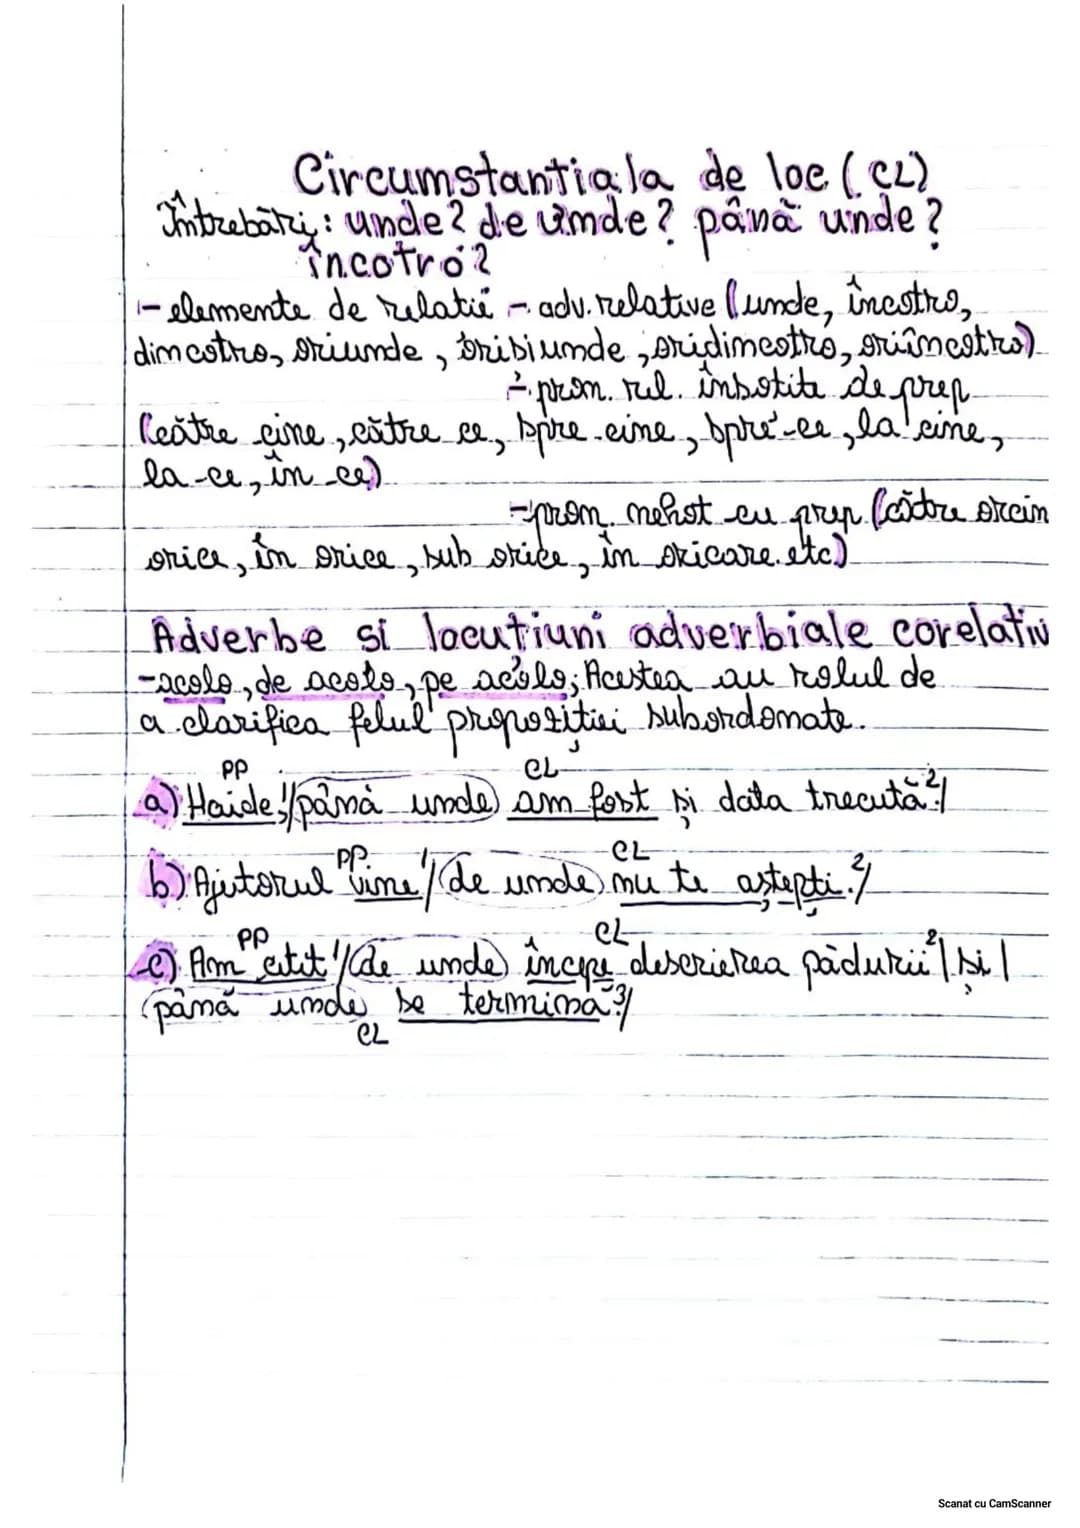 Circumstantiala de loc (CL)
Întrebări: unde? de unde? până unde?
încotro?
- elemente de relatii - adv. relative (unde, încotro,
dincotro, oriunde, orisiunde, oridincotro, oriîncotro)
- pron. rel. însotite de prep
(către cine, către ce, spre cine, spre ce, la cine,
la ce, în ce)
- pron. nehot cu prep. (către oricin
orice, în orice, sub orice, în oricare etc)
Adverbe si locuțiuni adverbiale corelativ
- acolo, de acolo, pe acolo; Acestea au rolul de
a clarifica felul propoziției subordonate.
PP CL
a) Haide,¹/ până unde am fost și data trecută.²/
PP CL
b) Ajutorul vine ¹/ de unde nu te aștepți.²/
PP CL
c) Am citit ¹/ de unde începe descrierea pădurii ²/ și /
până unde se termină.³/
CL
Scanat cu CamScanner